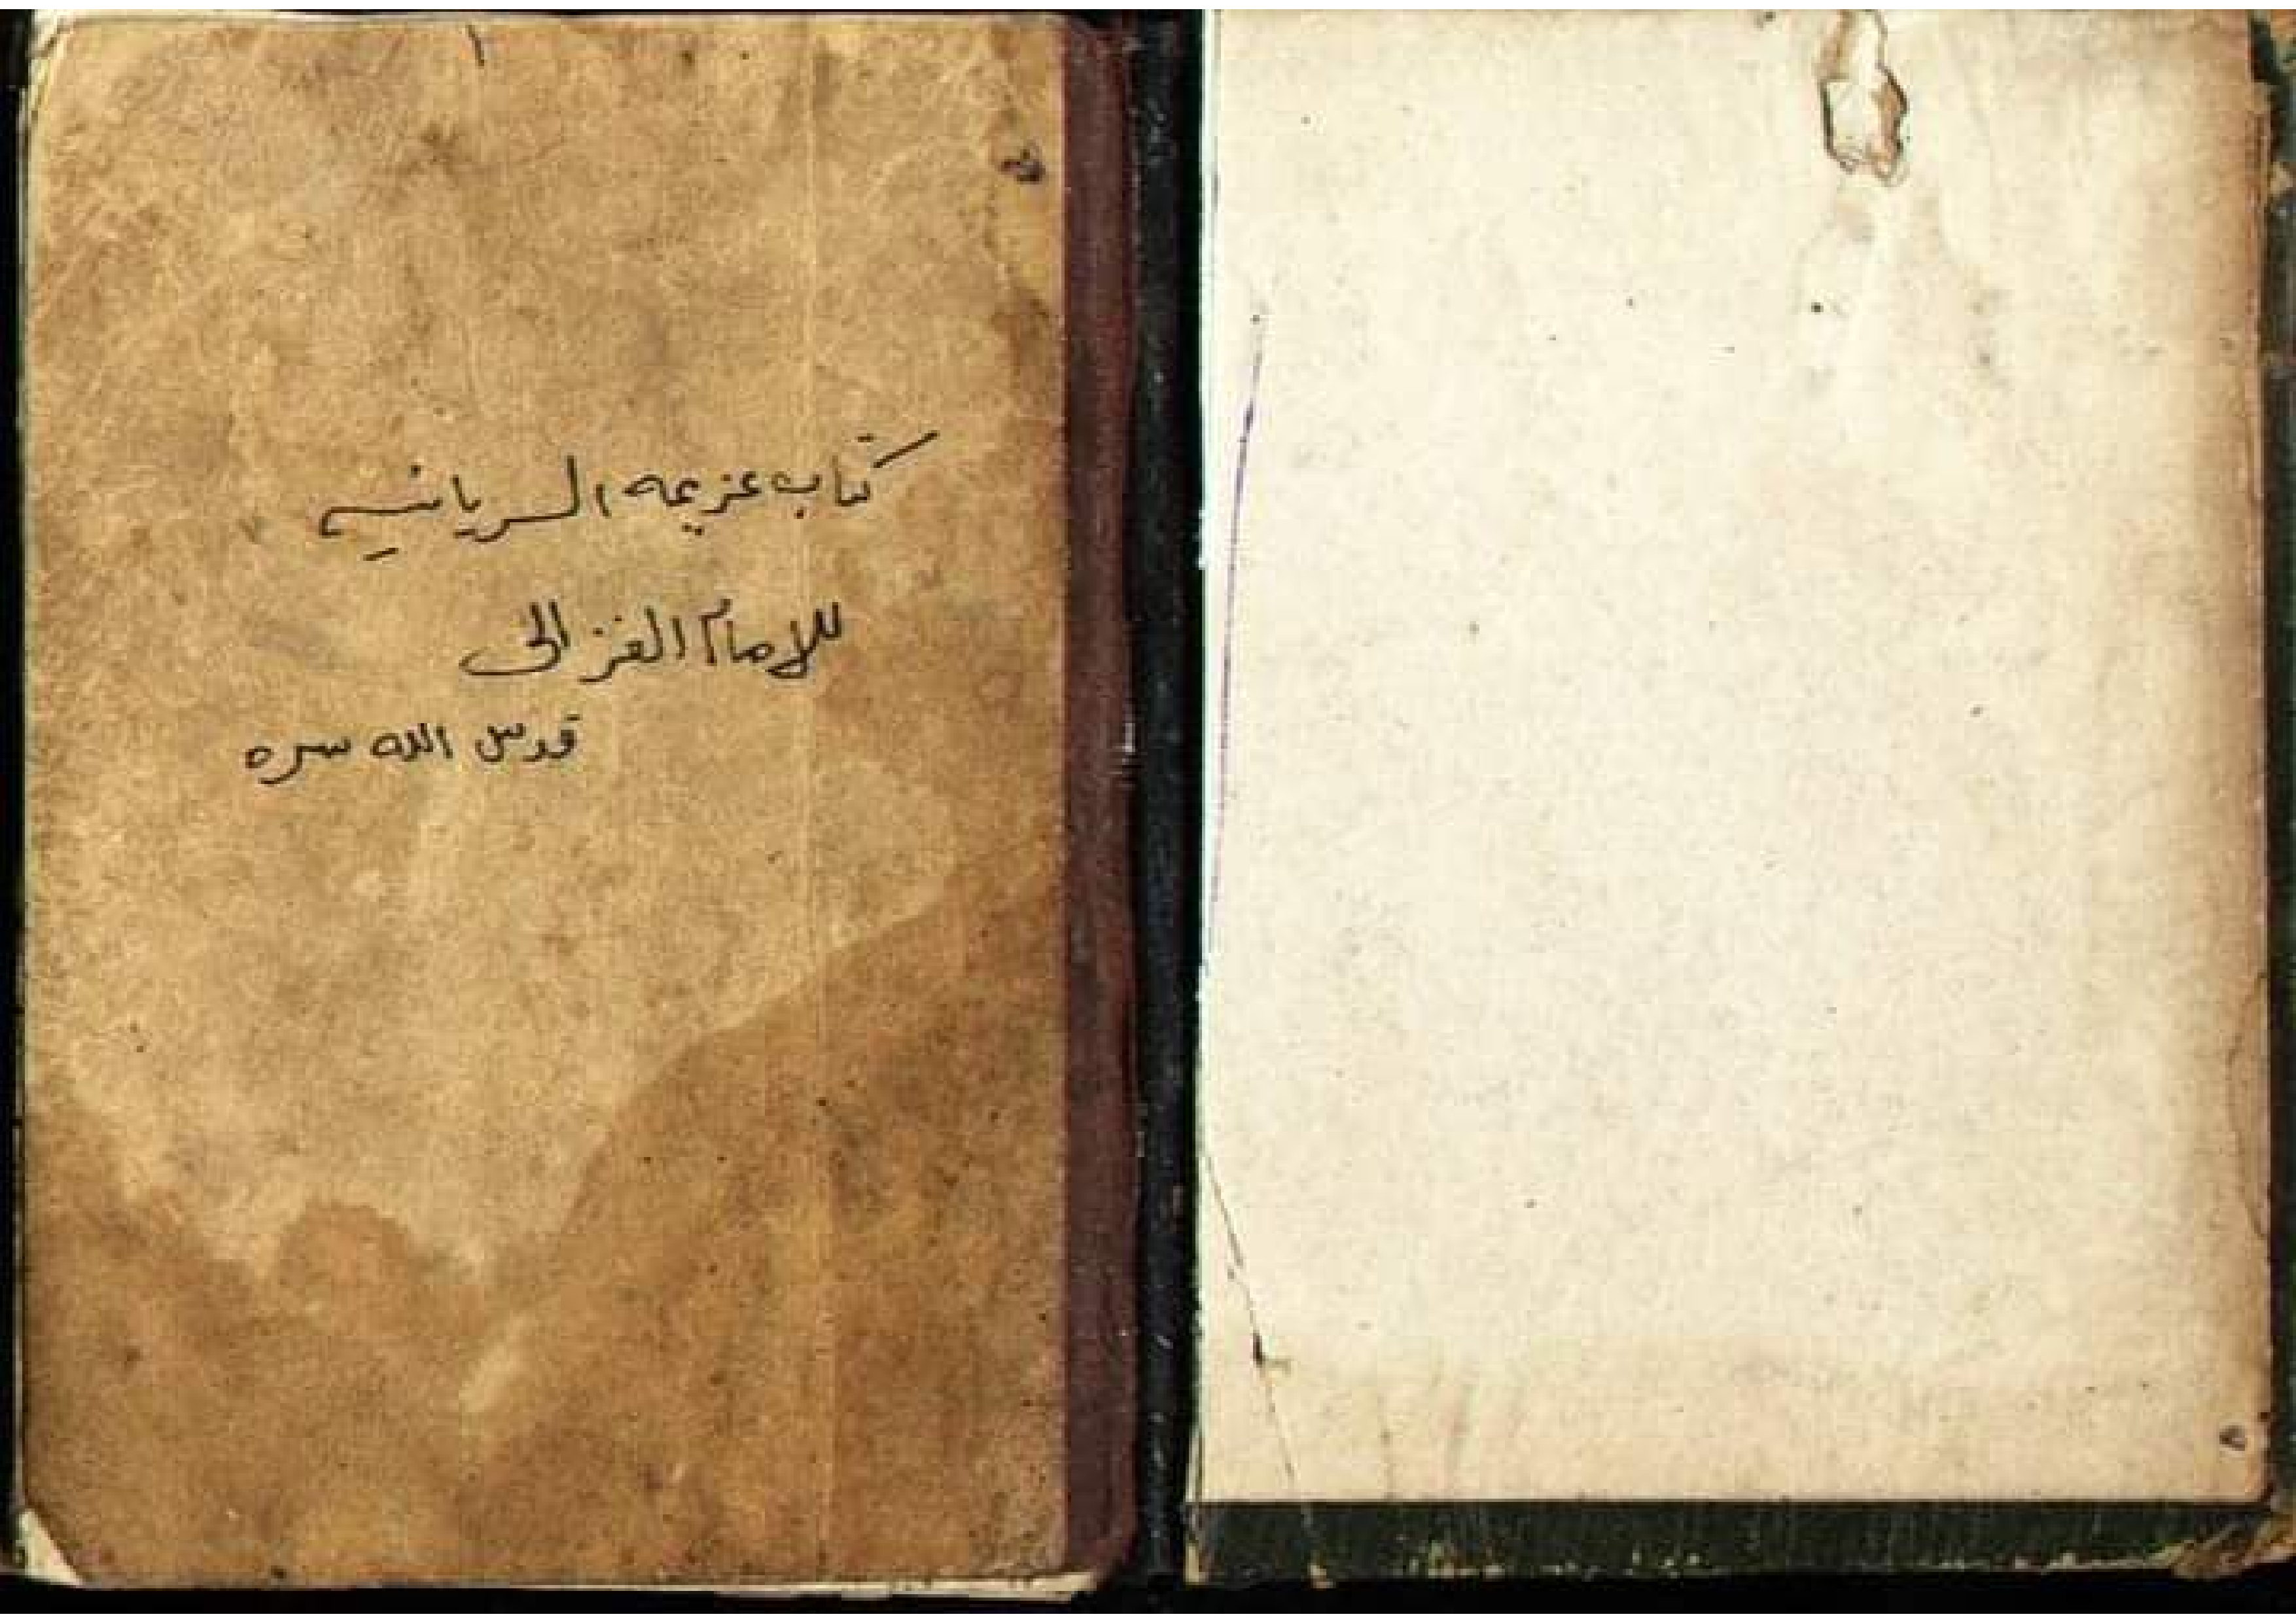 ١
كتاب عزيمه السريانيه
للامام الغزالى
قدس الله سره